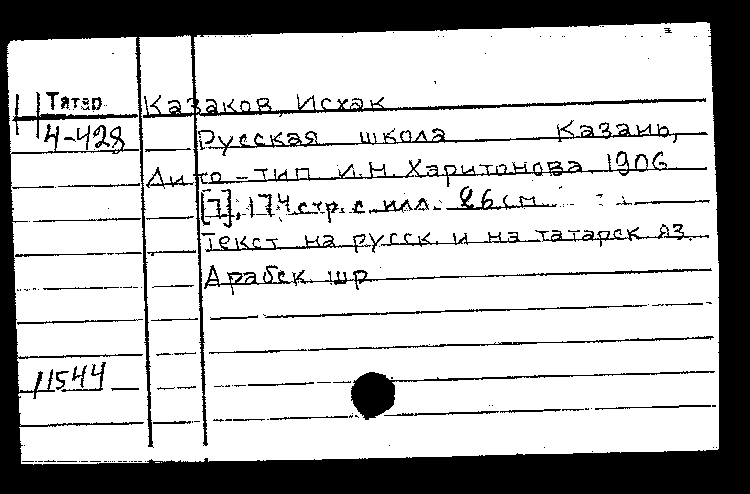 Татар Казаков, Исхак
4-428 Русская школа Казань,
Лито-тип И.Н. Харитонова 1906
[7], 174 стр. с илл. 26 см
Текст на русск. и на татарск яз.
Арабск шр
11544